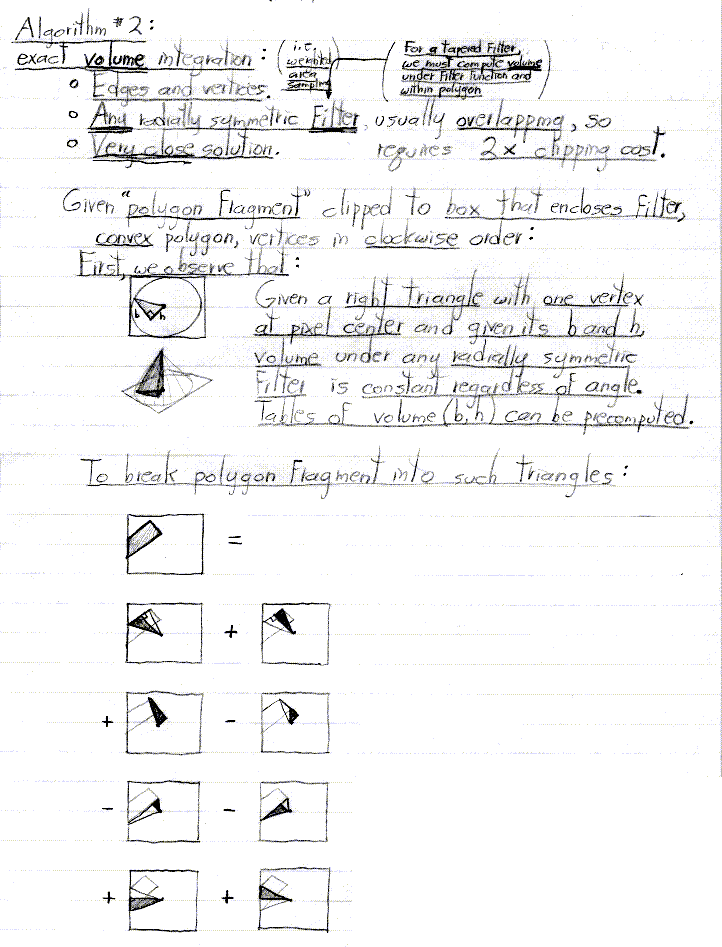 Algorithm #2:
exact volume integration: (i.e. weighted area sampling) (For a tapered Filter, we must compute volume under Filter function and within polygon)
o Edges and vertices.
o Any radially symmetric Filter, usually overlapping, so
o Very close solution. requires 2x clipping cost.
Given "polygon Fragment" clipped to box that encloses Filter,
convex polygon, vertices in clockwise order:
First, we observe that:
b h
Given a right triangle with one vertex
at pixel center and given its b and h,
volume under any radially symmetric
Filter is constant regardless of angle.
Tables of volume (b,h) can be precomputed.
To break polygon Fragment into such triangles:
=
+
+ -
- -
+ +